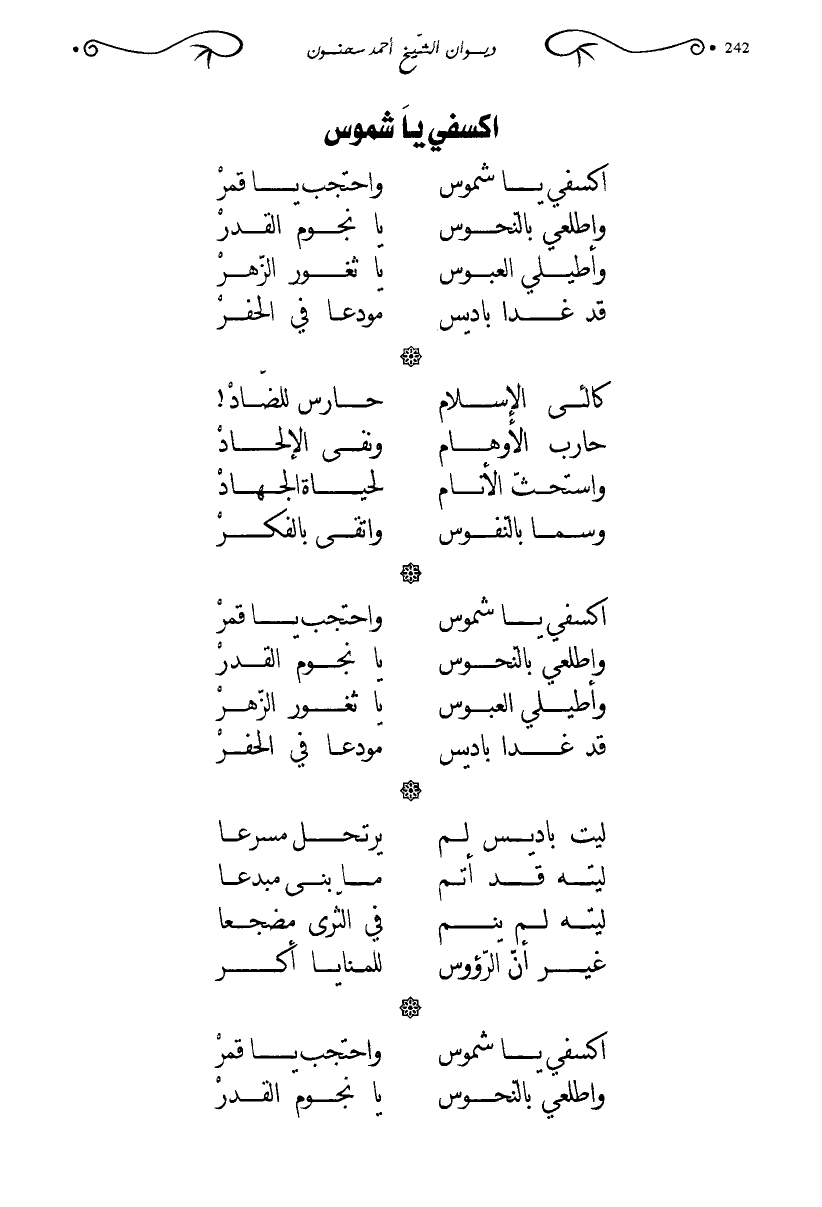 242 ديوان الشّيخ أحمد سحنون
اكسفي يَا شموس
اكسفي يا شموس واحتجب يا قمرْ
واطلعي بالنّحوس يا نجوم القدرْ
وأطيلي العبوس يا ثغور الزّهرْ
قد غدا باديس مودعا في الحفرْ
كالئى الإسلام حارس للضّادْ!
حارب الأوهام ونفى الإلحادْ
واستحثّ الأنام لحياة الجهادْ
وسما بالنّفوس واتقى بالفكرْ
اكسفي يا شموس واحتجب يا قمرْ
واطلعي بالنّحوس يا نجوم القدرْ
وأطيلي العبوس يا ثغور الزّهرْ
قد غدا باديس مودعا في الحفرْ
ليت باديس لم يرتحل مسرعا
ليته قد أتم ما بنى مبدعا
ليته لم ينم في الثرى مضجعا
غير أنّ الرّؤوس للمنايا أكر
اكسفي يا شموس واحتجب يا قمرْ
واطلعي بالنّحوس يا نجوم القدرْ